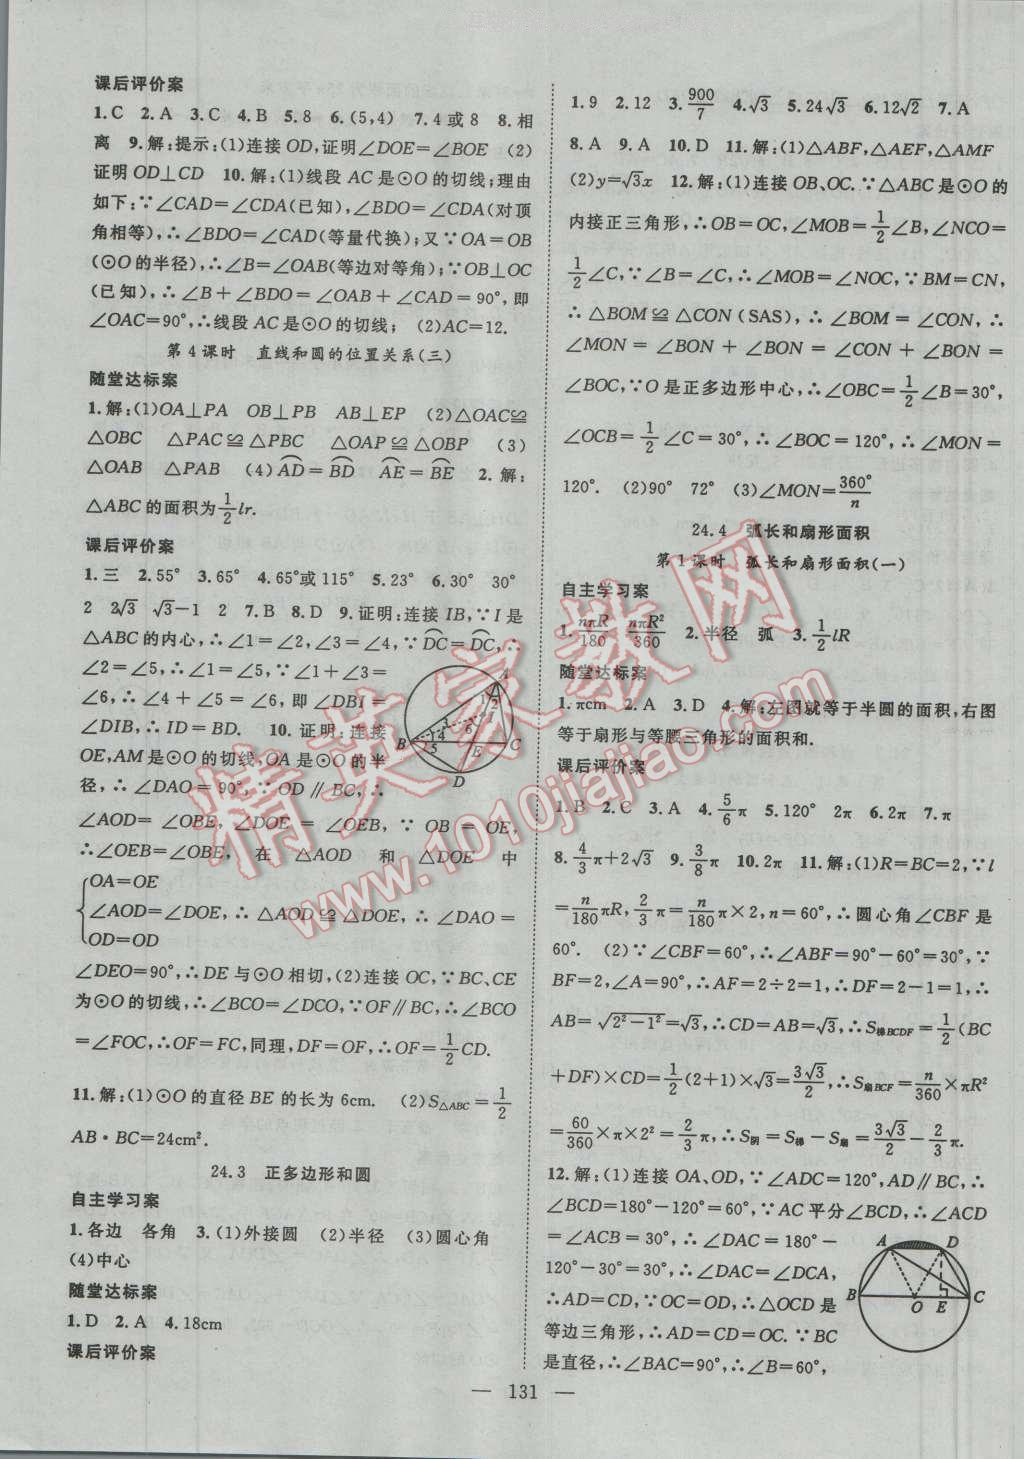 课后评价案
1.C 2.A 3.C 4.B 5.8 6.(5,4) 7.4或8 8.相
离 9.解:提示:(1)连接OD,证明∠DOE=∠BOE (2)
证明OD⊥CD 10.解:(1)线段AC是⊙O的切线;理由
如下:∵∠CAD=∠CDA(已知),∠BDO=∠CDA(对顶
角相等),∴∠BDO=∠CAD(等量代换);又∵OA=OB
(⊙O的半径),∴∠B=∠OAB(等边对等角);∵OB⊥OC
(已知),∴∠B+∠BDO=∠OAB+∠CAD=90°,即
∠OAC=90°,∴线段AC是⊙O的切线; (2)AC=12.
第4课时 直线和圆的位置关系(三)
随堂达标案
1.解:(1)OA⊥PA OB⊥PB AB⊥EP (2)△OAC≌
△OBC △PAC≌△PBC △OAP≌△OBP (3)
△OAB △PAB (4)AD=BD AE=BE 2.解:
△ABC的面积为1/2lr.
课后评价案
1.三 2.55° 3.65° 4.65°或115° 5.23° 6.30° 30°
2 2√3 √3-1 2 7.B 8.D 9.证明:连接IB,∵I是
△ABC的内心,∴∠1=∠2,∠3=∠4,∵DC=DC,∴
∠2=∠5,∴∠1=∠5,∵∠1+∠3=
∠6,∴∠4+∠5=∠6,即∠DBI=
∠DIB,∴ID=BD. 10.证明:连接
OE,AM是⊙O的切线,OA是⊙O的半
径,∴∠DAO=90°,∵OD∥BC,∴
∠AOD=∠OBE,∠DOE=∠OEB,∵OB=OE,
∴∠OEB=∠OBE,在△AOD和△DOE中
OA=OE
∠AOD=∠DOE,∴△AOD≌△DOE,∴∠DAO=
OD=OD
∠DEO=90°,∴DE与⊙O相切,(2)连接OC,∵BC、CE
为⊙O的切线,∴∠BCO=∠DCO,∵OF∥BC,∴∠BCO
=∠FOC,∴OF=FC,同理,DF=OF,∴OF=1/2CD.
11.解:(1)⊙O的直径BE的长为6cm. (2)S△ABC=1/2
AB·BC=24cm².
24.3 正多边形和圆
自主学习案
1.各边 各角 3.(1)外接圆 (2)半径 (3)圆心角
(4)中心
随堂达标案
1.D 2.A 4.18cm
课后评价案
1.9 2.12 3.900/7 4.√3 5.24√3 6.12√2 7.A
8.A 9.A 10.D 11.解:(1)△ABF,△AEF,△AMF
(2)y=√3x 12.解:(1)连接OB、OC.∵△ABC是⊙O的
内接正三角形,∴OB=OC,∠MOB=1/2∠B,∠NCO=
1/2∠C,∵∠B=∠C,∴∠MOB=∠NOC,∵BM=CN,
∴△BOM≌△CON(SAS),∴∠BOM=∠CON,∴
∠MON=∠BON+∠BOM=∠BON+∠CON=
∠BOC,∵O是正多边形中心,∴∠OBC=1/2∠B=30°,
∠OCB=1/2∠C=30°,∴∠BOC=120°,∴∠MON=
120°. (2)90° 72° (3)∠MON=360°/n
24.4 弧长和扇形面积
第1课时 弧长和扇形面积(一)
自主学习案
1.nπR/180 nπR²/360 2.半径 弧 3.1/2lR
随堂达标案
1.πcm 2.A 3.D 4.解:左图就等于半圆的面积,右图
等于扇形与等腰三角形的面积和.
课后评价案
1.B 2.C 3.A 4.5/6π 5.120° 2π 6.2π 7.π
8.4/3π+2√3 9.3/8π 10.2π 11.解:(1)R=BC=2,∵l
=n/180πR,2/3π=n/180π×2,n=60°,∴圆心角∠CBF是
60°. (2)∵∠CBF=60°,∴∠ABF=90°-60°=30°,∵
BF=2,∠A=90°,∴AF=2÷2=1,∴DF=2-1=1,∴
AB=√2²-1²=√3,∴CD=AB=√3,∴S梯BCDF=1/2(BC
+DF)×CD=1/2(2+1)×√3=3√3/2,∴S扇BCF=n/360×πR²
=60/360×π×2²=2/3π,∴S阴=S梯-S扇=3√3/2-2/3π.
12.解:(1)连接OA、OD,∵∠ADC=120°,AD∥BC,∴
∠BCD=180°-120°=60°,∵AC平分∠BCD,∴∠ACD
=∠ACB=30°,∴∠DAC=180°-
120°-30°=30°,∴∠DAC=∠DCA,
∴AD=CD,∵OC=OD,∴△OCD是
等边三角形,∴AD=CD=OC.∵BC
是直径,∴∠BAC=90°,∴∠B=60°,
A
1
2
3
4
6
I
B
5
E
C
D
A
D
B
O
E
C
— 131 —
精英家教网
www.1010jiajiao.com